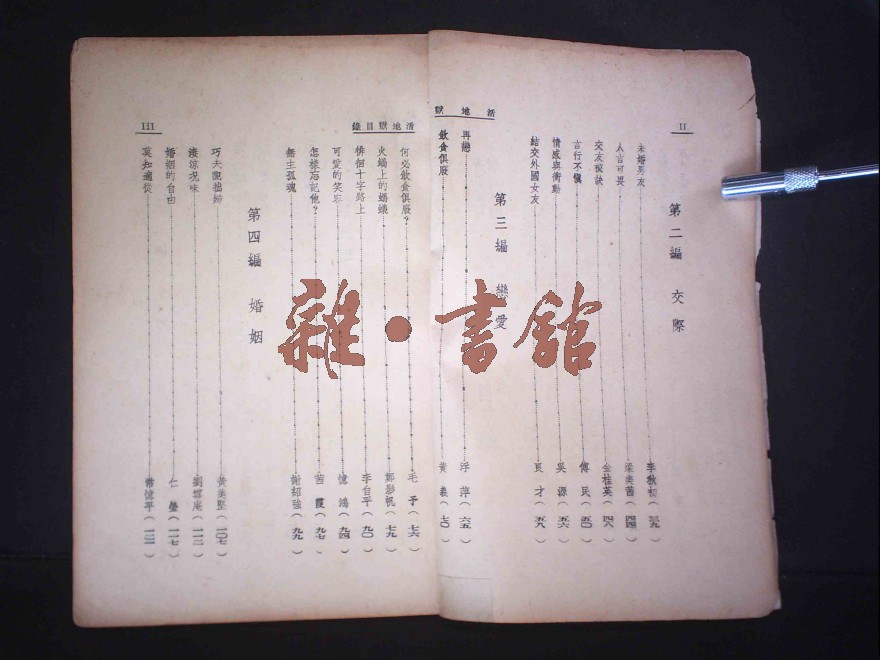 II
活地獄
第二編 交際
未婚男友……李秋初(三九)
人言可畏……梁美茜(四四)
交友秘訣……金桂英(四八)
言行不慎……傅民(五〇)
情感與衝動……吳源(五六)
結交外國女友……良才(五八)
第三編 戀愛
再戀……浮萍(六五)
飲食俱廢……黃義(七〇)
活地獄目錄
III
何必飲食俱廢?……毛予(七六)
火鍋上的螞蟻……鄭影帆(七九)
徘徊十字路上……李自平(九〇)
可愛的笑容……憶鴻(九四)
怎樣忘記他?……茜霞(九七)
無主孤魂……謝紹強(九九)
第四編 婚姻
巧夫龍拙婦……黃美堅(一〇七)
淒涼况味……劉雲庵(一一二)
婚姻的自由……仁瑩(一一七)
莫知適從……常憶平(一二一)
雜·書館